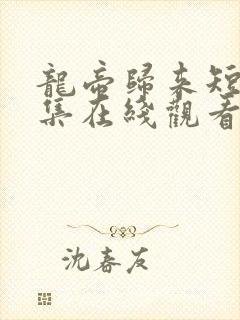 龍帝歸來短
集在綫觀看
沈春友